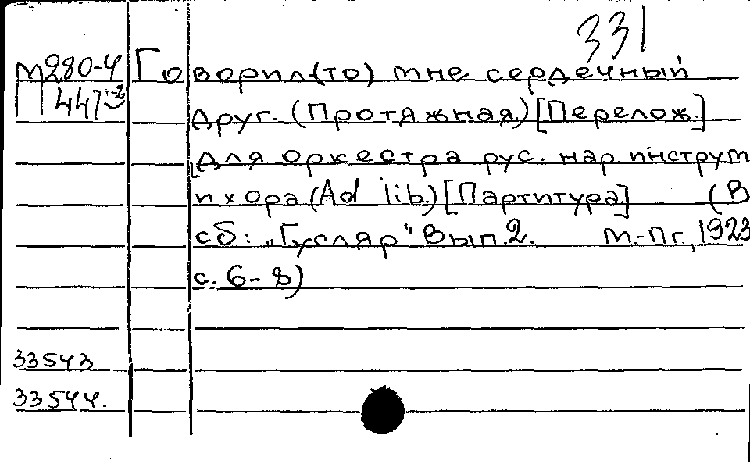 331
М280-4 Говорил(то) мне сердечный
447 друг. (Протяжная) [Перелож.]
для оркестра рус. нар. инструм
и хора (Ad lib.) [Партитура] (В
сб: „Гусляр" Вып. 2. М.-Пг., 1923
с. 6-8)
33543
33544.